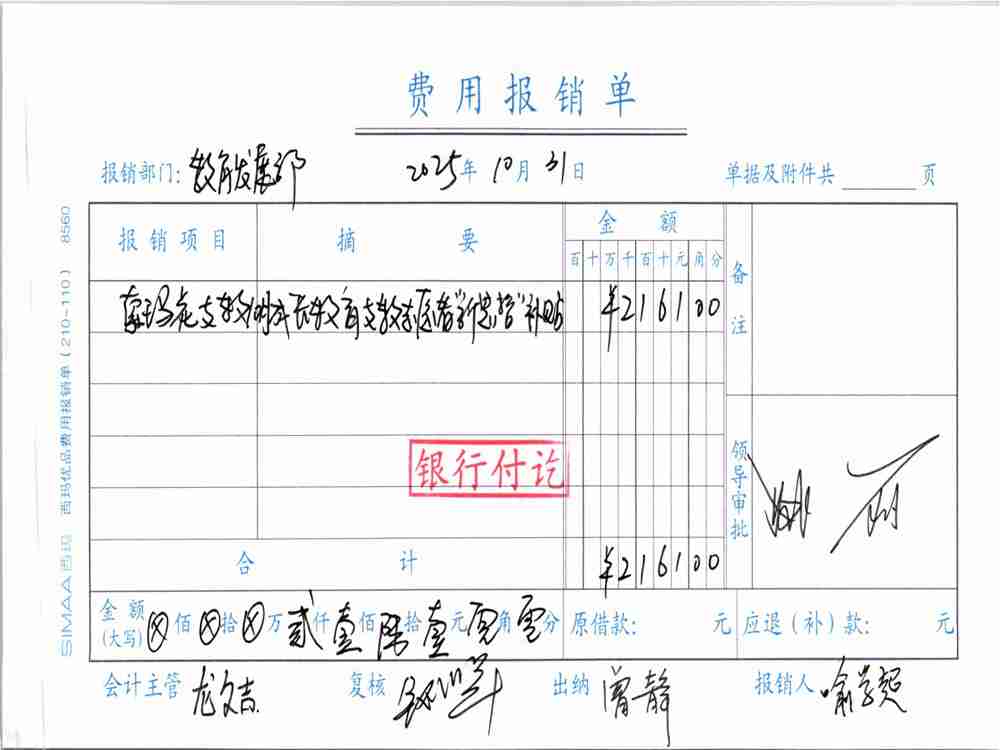 费用报销单
报销部门: 教育发展部 2025年 10月 31日 单据及附件共 页
报销项目 摘要 金额 备注
百十万千百十元角分
支教 教育支教 补贴 ¥216100
银行付讫
领导审批
合计 ¥216100
金额(大写) ⊗佰⊗拾⊗万贰仟壹佰陆拾壹元零角零分 原借款: 元 应退(补)款: 元
会计主管 龙文吉 复核 出纳 曾静 报销人 喻学超
SIMAA西玛 西玛优品费用报销单(210-110) 8560